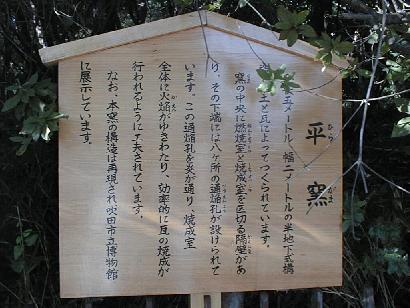 平窯
ひらがま
五メートル、幅二メートルの半地下式構
土と瓦によってつくられています。
窯の中央に燃焼室と焼成室を区切る隔壁があ
り、その下端には八ヶ所の通焔孔が設けられて
います。この通焔孔を炎が通り、焼成室
全体に火焔がゆきわたり、効率的に瓦の焼成が
行われるように工夫されています。
なお、本窯の構造は再現され吹田市立博物館
に展示しています。